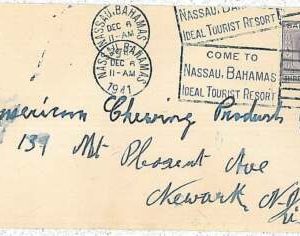 NASSAU, BAHAMAS
DEC 6
11-AM
NASSAU, BAHAMAS
DEC 6
11-AM
1941
NASSAU, BAHAMAS
IDEAL TOURIST RESORT
COME TO
NASSAU, BAHAMAS
IDEAL TOURIST RESORT
American Chewing Products
139 Mt Pleasent Ave
Newark, N.J.